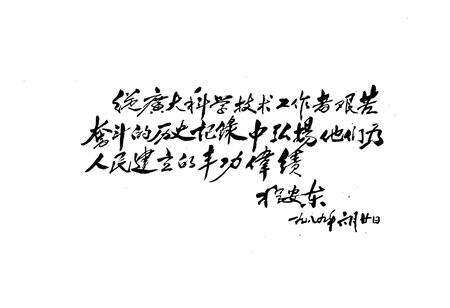 從廣大科学技术工作者艰苦
奮斗的历史记录中弘揚他们为
人民建立的丰功偉績
安东
一九八九年六月廿日